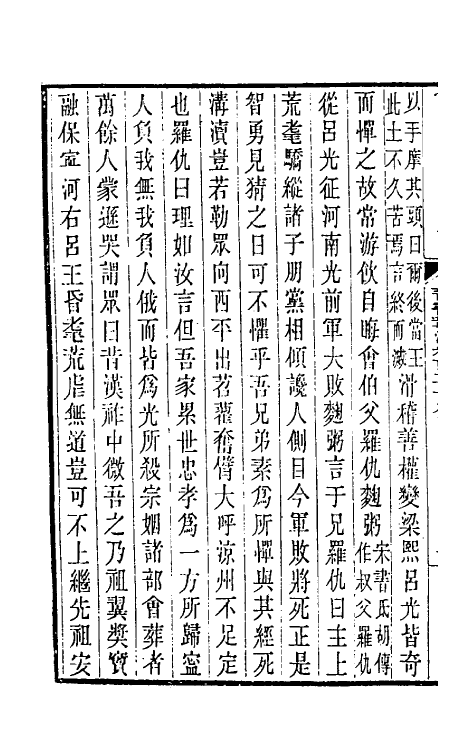 以手摩其頭曰爾後當王
此土不久苦焉言終而滅滑稽善權變梁熙呂光皆奇
而憚之故常游飲自晦會伯父羅仇麴粥宋書氐胡傳
作叔父羅仇
從呂光征河南光前軍大敗麴粥言于兄羅仇曰主上
荒耄驕縱諸子朋黨相傾讒人側目今軍敗將死正是
智勇見猜之日可不懼乎吾兄弟素為所憚與其經死
溝瀆豈若勒眾向西平出苕藋奮臂大呼涼州不足定
也羅仇曰理如汝言但吾家累世忠孝為一方所歸寧
人負我無我負人俄而皆為光所殺宗姻諸部會葬者
萬餘人蒙遜哭謂眾曰昔漢祚中微吾之乃祖翼獎竇
融保寧河右呂王昏耄荒虐無道豈可不上繼先祖安